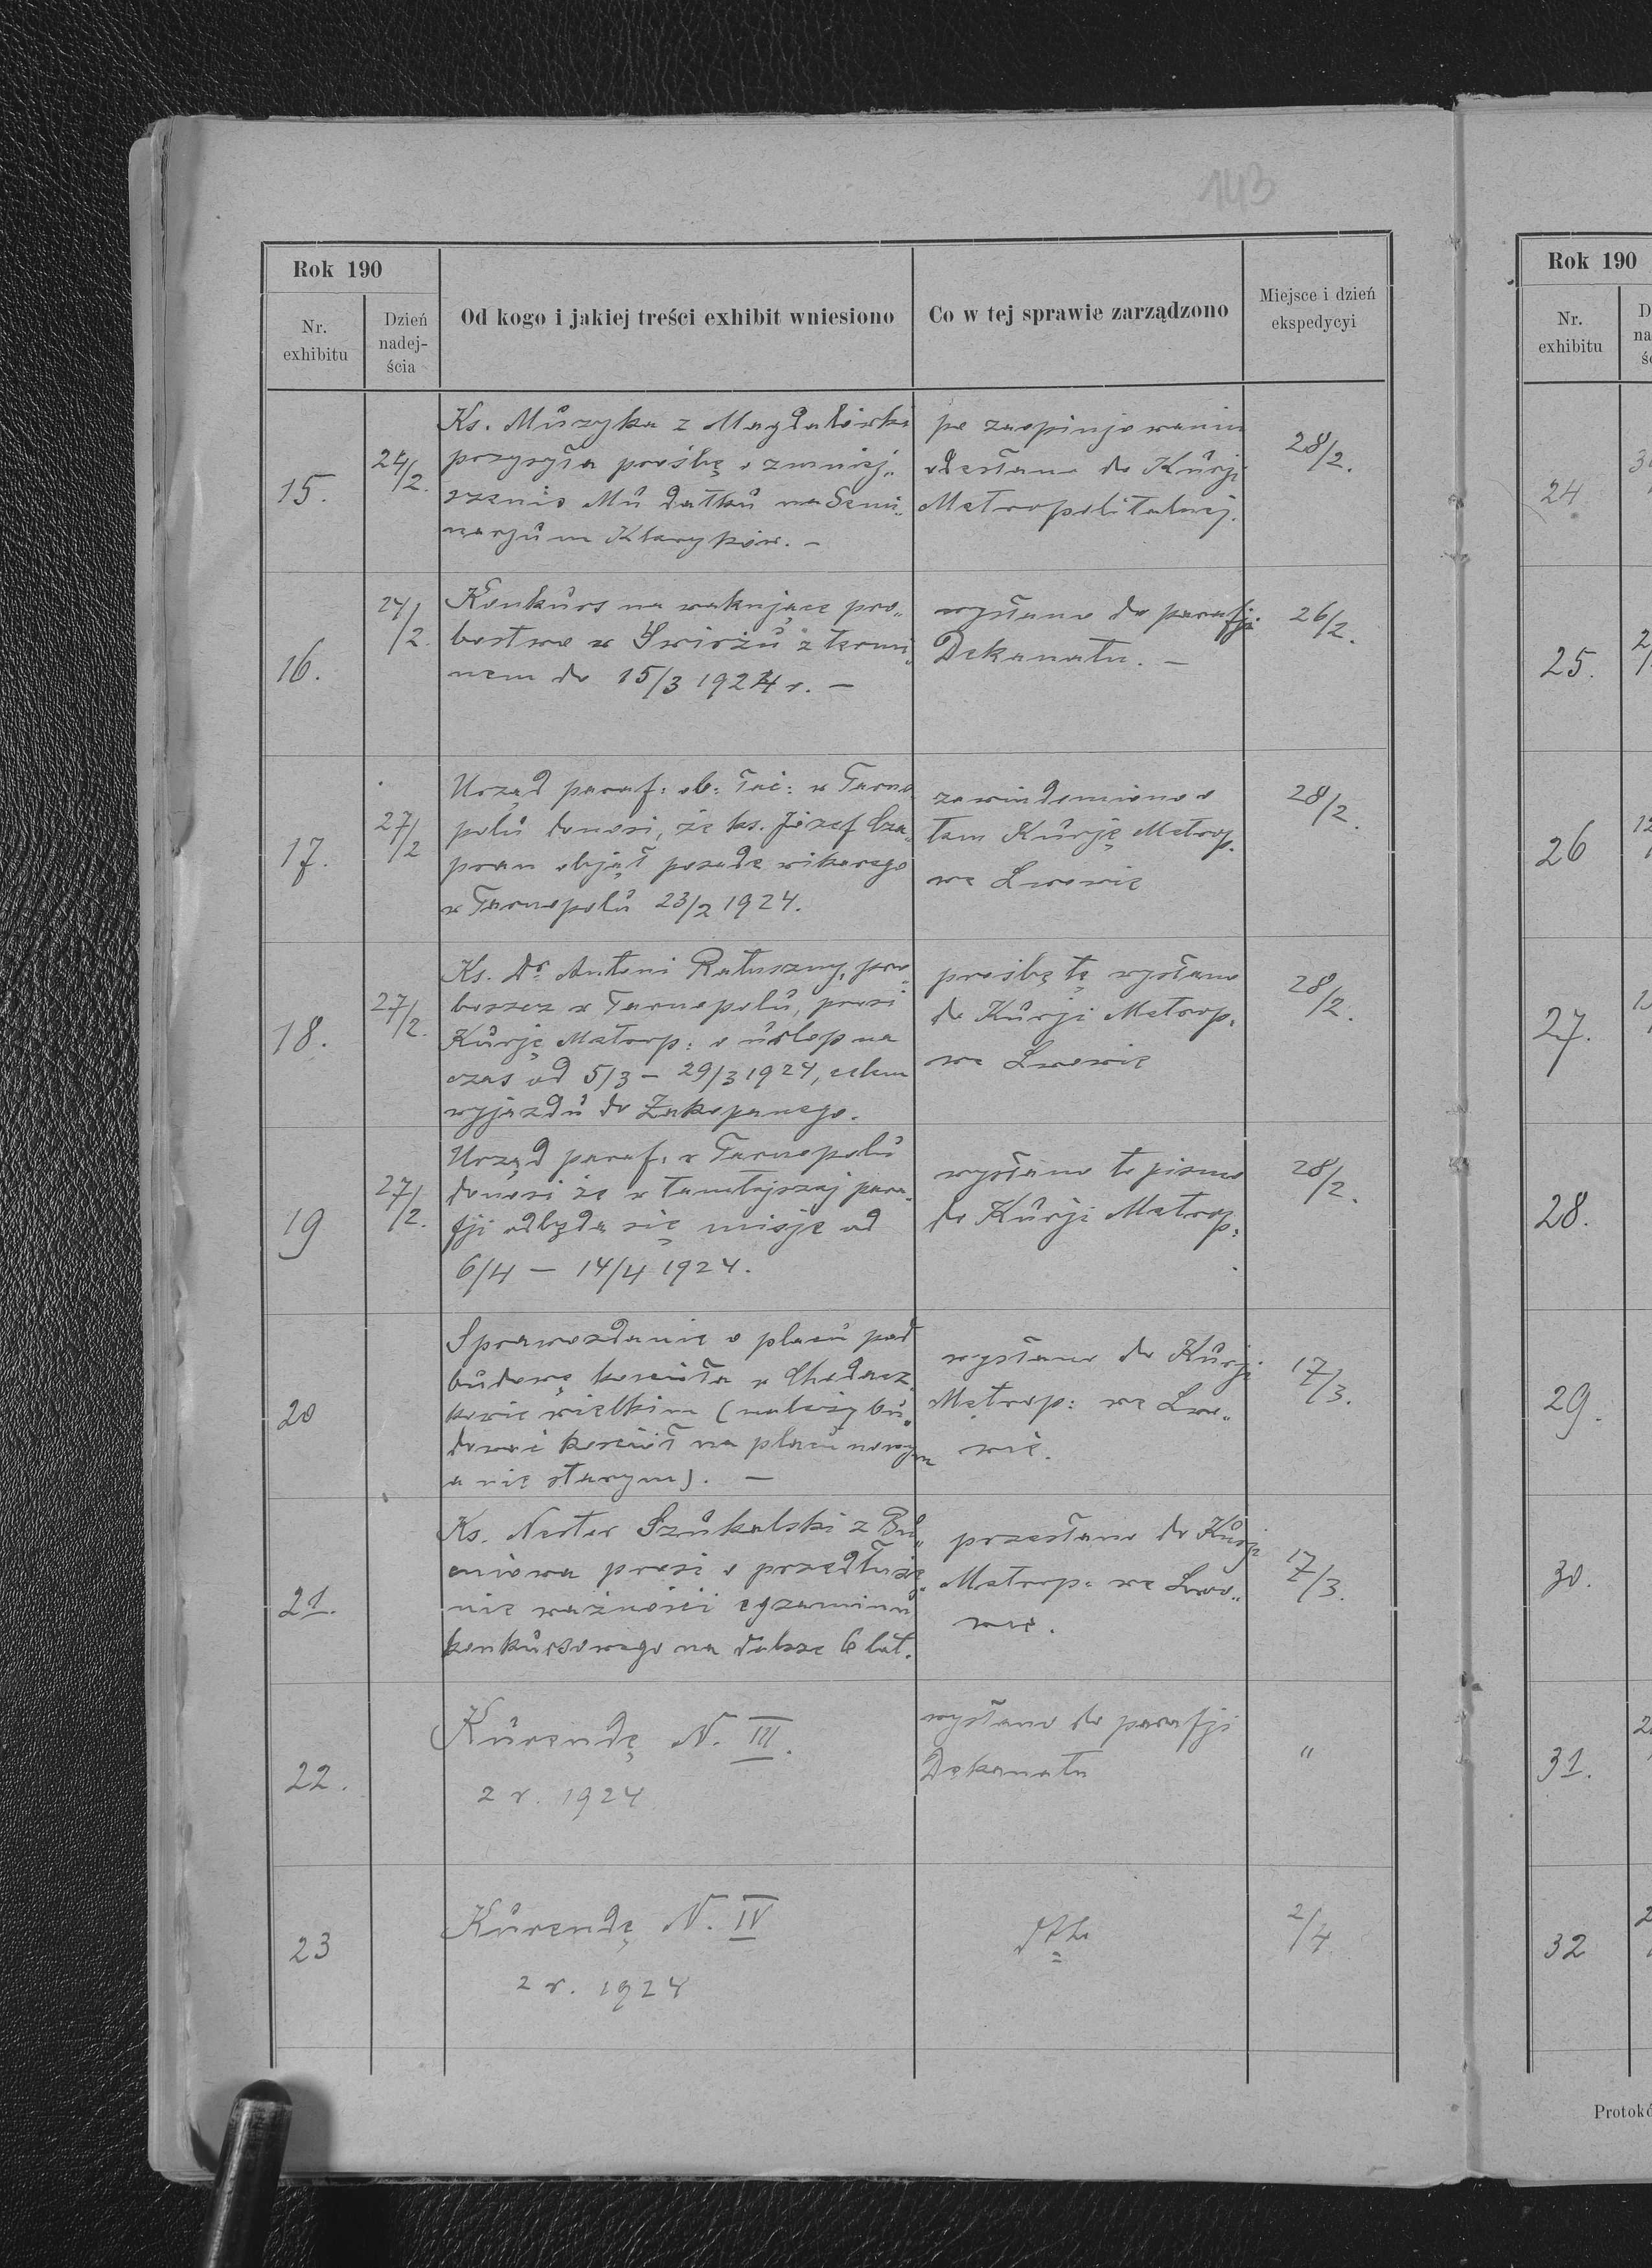 143
Rok 190
Nr. exhibitu
Dzień nadej-ścia
Od kogo i jakiej treści exhibit wniesiono
Co w tej sprawie zarządzono
Miejsce i dzień ekspedycyi
15.
24/2.
Ks. Muzyka z Magdalówki
przysyła prośbę o zmniej„
szenie Mu datku na Semi„
narjum Kleryków. –
po zaopinjowaniu
odesłano do Kurji
Metropolitalnej.
28/2.
16.
24/2.
Konkurs na wakujące pro„
bostwo w Świrżu z termi„
nem do 15/3 1924 r. –
wysłano do parafji
Dekanatu. –
26/2.
17.
27/2
Urząd paraf: ob: łać: w Tarno„
polu donosi, że ks. Józef Cza„
pran objął posadę wikarego
w Tarnopolu 23/2 1924.
zawiadomiono o
tem Kurję Metrop.
we Lwowie
28/2.
18.
27/2.
Ks. Dr Antoni Ratuszny, pro„
boszcz w Tarnopolu, prosi
Kurję Metrop: o urlop na
czas od 5/3 – 29/3 1924, celem
wyjazdu do Zakopanego.
prośbę tę wysłano
do Kurji Metrop.
we Lwowie
28/2.
19
27/2.
Urząd paraf. w Tarnopolu
donosi że w tamtejszej para„
fji odbędą się misje od
6/4 – 14/4 1924.
wysłano to pismo
do Kurji Metrop.
28/2.
20
Sprawozdanie o placu pod
budowę kościoła w Chodacz„
kowie wielkim (należy bu„
dować kościół na placu nowym
a nie starym). –
wysłano do Kurji
Metrop: we Lwo„
wie.
17/3.
21.
Ks. Nestor Szukalski z Bu„
cniowa prosi o przedłuże„
nie ważności egzaminu
konkursowego na dalsze 6 lat.
przesłano do Kurji
Metrop: we Lwo„
wie.
17/3.
22.
Kurendę N. III.
z r. 1924
wysłano do parafji
Dekanatu
"
23
Kurendę N. IV
z r. 1924
dtto
2/4
Rok 190
Nr. exhibitu
24
25.
26
27.
28.
29.
30.
31.
32